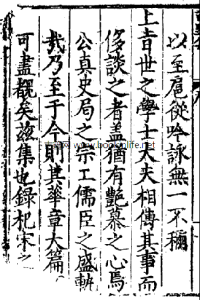 以至扈從吟詠無一不稱
上旨世之學士大夫相傳其事而
侈談之者蓋猶有艷慕之心焉
公真史局之宗工儒臣之盛軌
哉乃至于今則其華章大篇
可盡觀矣茲集也錄杞宋之